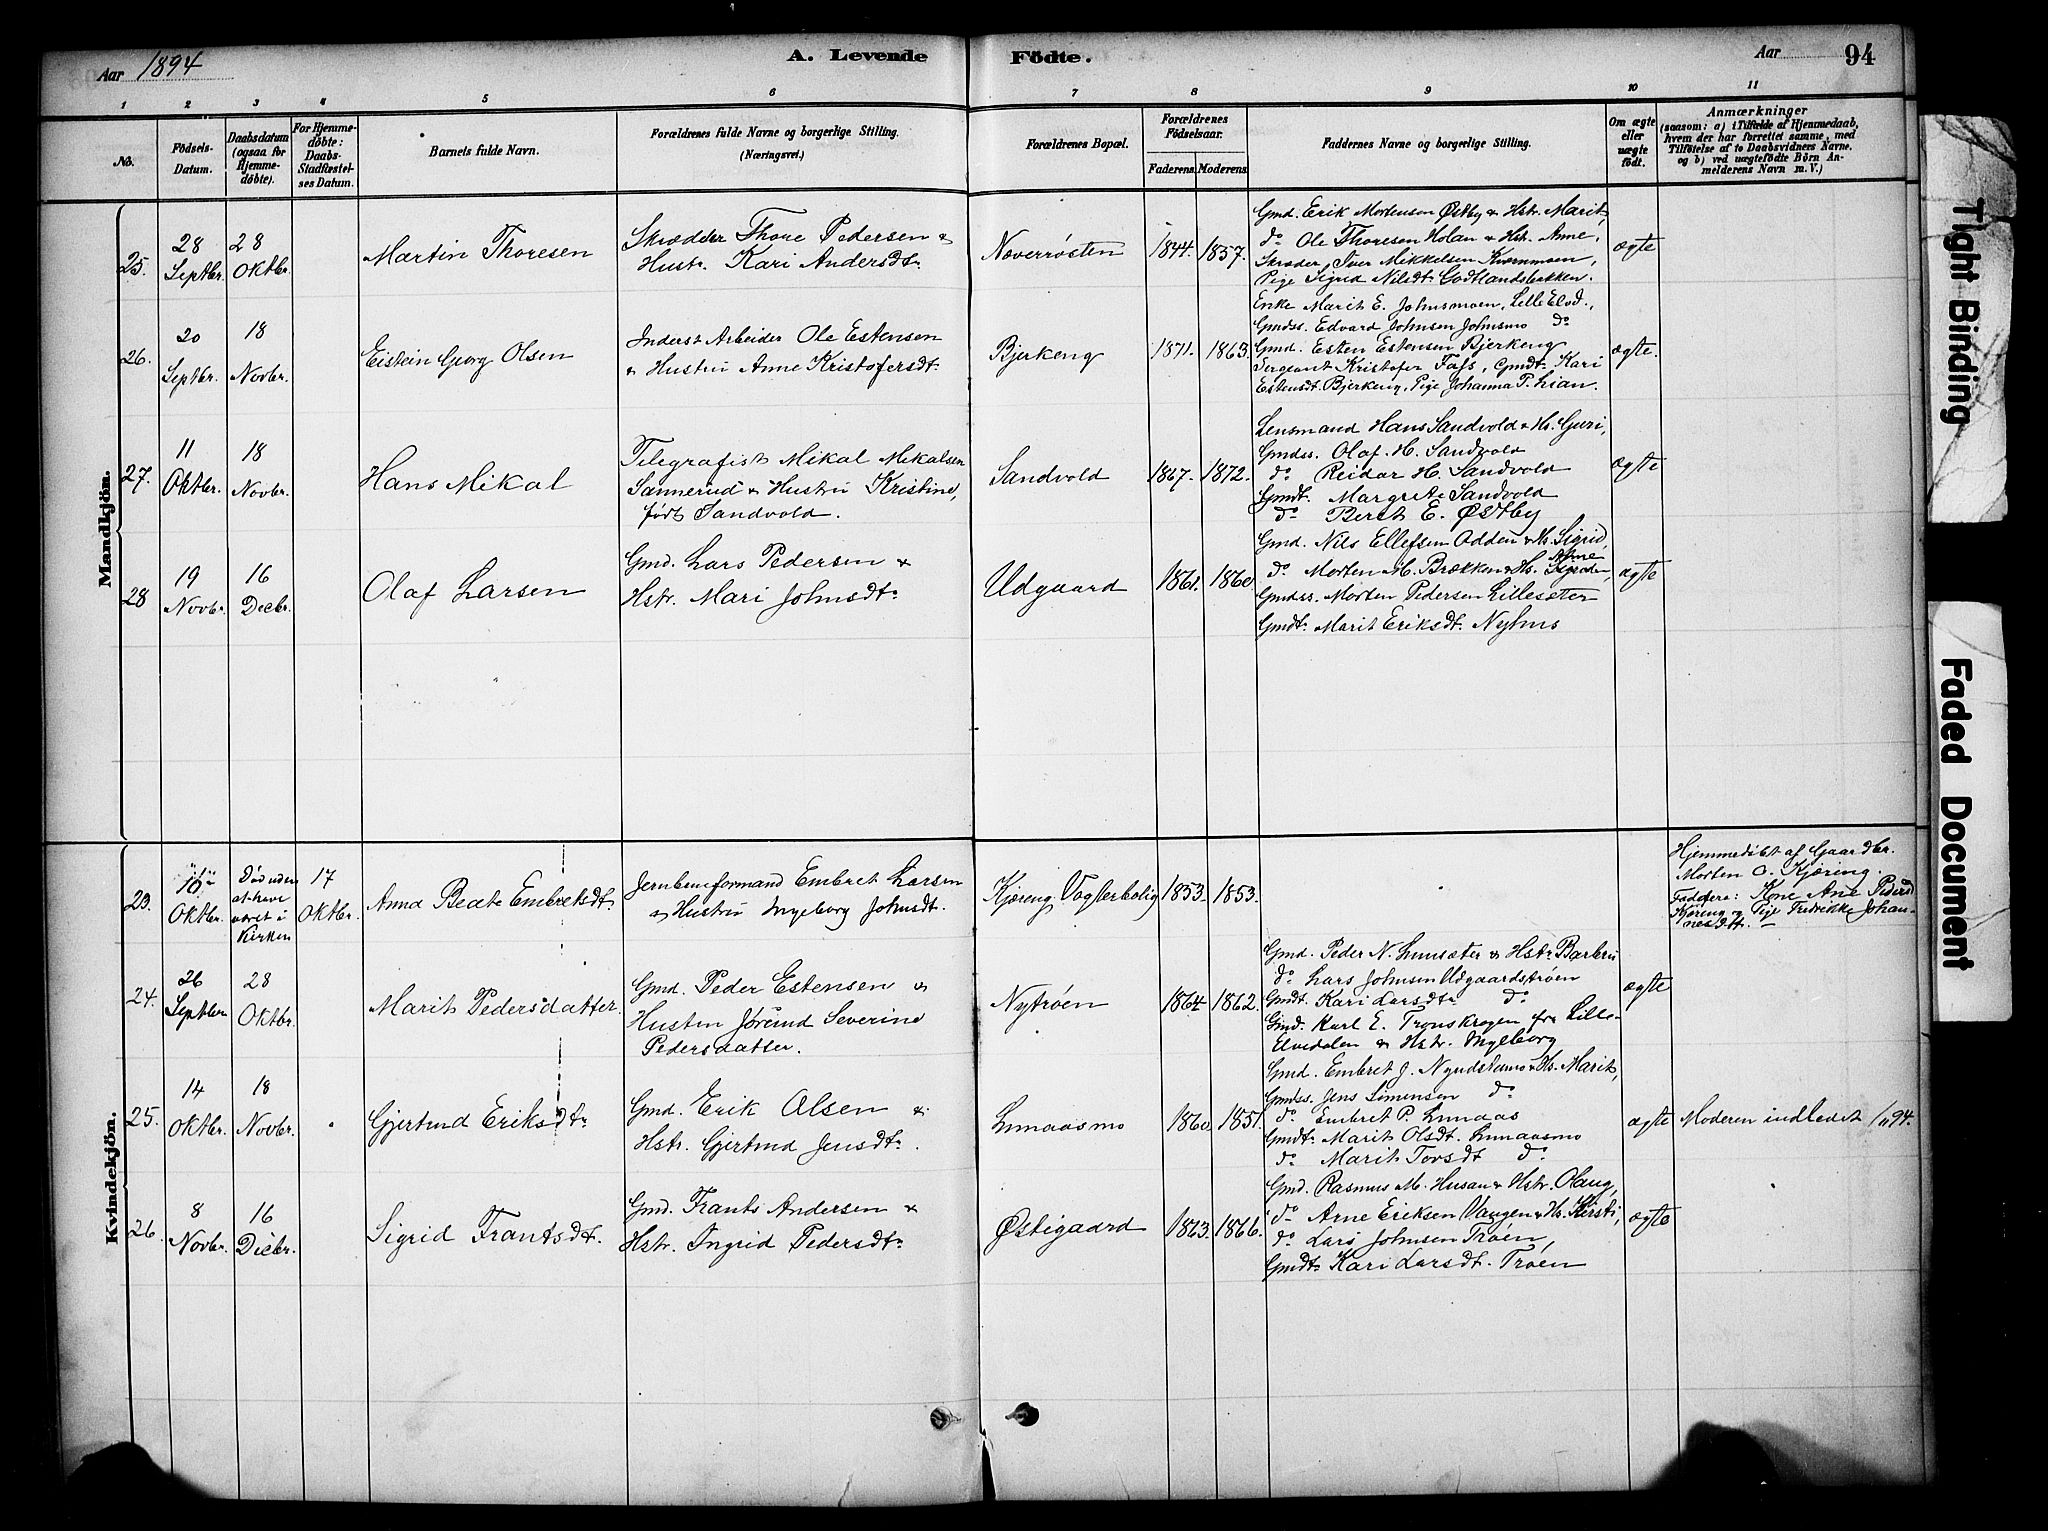 Aar 1894
A. Levende
Födte.
Aar
94
1 2 3 4 5 6 7 8 9 10 11
No.
Födsels-
Datum.
Daabsdatum
(ogsaa for
Hjemme-
døbte).
For Hjemme-
døbte:
Daabs-
Stadfæstel-
ses Datum.
Barnets fulde Navn.
Forældrenes fulde Navne og borgerlige Stilling.
(Næringsvei.)
Forældrenes Bopæl.
Forældrenes
Födselsaar.
Faderens. Moderens.
Faddernes Navne og borgerlige Stilling.
Om ægte
eller
uægte
født.
Anmærkninger
(saasom: a) i Tilfælde af Hjemmedaab,
hvem der har forrettet samme, med
Tilføielse af to Daabsvidners Navne.
og b) ved uægtefødte Börn An-
melderens Navn m. V.)
Mandkjön.
25.
28
Septbr.
28
Oktbr.
Martin Thoresen
Skrædder Thore Pedersen &
Hustr. Kari Andersdtr
Noverrøsten
1844. 1857.
Gmd. Erik Mortensen Østby & Hstr. Marit,
do Ole Thoresen Holan & Hstr. Anne,
Skræder Iver Mikkelsen Kvernmoen,
Pige Sigrid Nilsdtr Godtlandsbakken.
ægte
26.
20
Septbr.
18
Novbr.
Eistein Georg Olsen
Inderst Arbeider Ole Estensen
& Hustru Anne Kristofersdtr
Bjerkeng
1871. 1863.
Enke Marit E. Johnsmoen, Lille Elvd.,
Gmdss. Edvard Johnsen Johnsmo do
Gmd. Esten Estensen Bjerkeng
Sergeant Kristofer Foss, Gmdtr Kari
Estensdt. Bjerkeng, Pige Johanna P. Lian.
ægte.
27.
11
Oktbr.
18
Novbr.
Hans Mikal
Telegrafist Mikal Mikalsen
Sannerud & Hustru Kristine,
født Sandvold.
Sandvold
1867. 1872.
Lensmand Hans Sandvold & H. Guri,
Gmdss. Olaf H. Sandvold
do Reidar H. Sandvold
Gmdt. Margrete Sandvold
do Berit E. Østby
ægte
28
19
Novbr.
16
Decbr.
Olaf Larsen
Gmd. Lars Pedersen &
Hstr. Mari Johnsdtr
Udgaard
1861. 1860
Gmd. Nils Ellefsen Odden & H. Sigrid,
do Morten M. Brækken & H. Anne
Gmdss. Morten Pedersen Lillesæter
Gmdtr Marit Eriksdt. Nyhus
ægte
Kvindekjön.
23.
16
Oktbr.
Død uden
at have
været i
Kirken
17
Oktbr.
Anna Beate Embretsdt.
Jernbaneformand Embret Larsen
& Hustru Ingeborg Johnsdt.
Kjøreng Vogterbolig
1853. 1853.
Hjemmedöbt af Gaardbr.
Morten O. Kjøring.
Faddere: Kone Ane Pedersd
Kjøreng og Pige Fredrikke Johan-
nesdtr.
24.
26
Septber
28
Oktbr.
Marit Pedersdatter.
Gmd. Peder Estensen &
Hustru Jørund Severine
Pedersdatter.
Nytrøen
1864 1862.
Gmd. Peder N. Lunsæter & Hstr Barbru
do Lars Johnsen Udgaardstrøen
Gmdt. Kari Larsdtr do
Gmd. Karl E. Tronskragen fra Lille-
Elvedalen & Hstr. Ingeborg
ægte
25.
14
Oktbr.
18
Novbr.
Gjertrud Eriksdtr
Gmd. Erik Olsen &
Hstr. Gjertrud Jensdtr.
Lunaasmo
1860. 1851.
Gmd. Embret J. Nyrudsvmo & H. Marit,
Gmdss. Jens Simensen do
do Embret P. Lunaas
Gmdtr Marit Olsdt. Lunaasmo
do Marit Torsdt do
ægte
Moderen indledet 1/11 94.
26.
8
Novbr.
16
Decbr.
Sigrid Frantsdt.
Gmd. Frants Andersen &
Hstr. Ingrid Pedersdtr
Østigaard
1863. 1866.
Gmd. Rasmus M. Husan & Hstr. Olaug,
do Arne Eriksen Vangen & H. Kirsti,
do Lars Johnsen Trøen,
Gmdtr Kari Larsdt. Trøen
ægte
Tight Binding
Faded Document